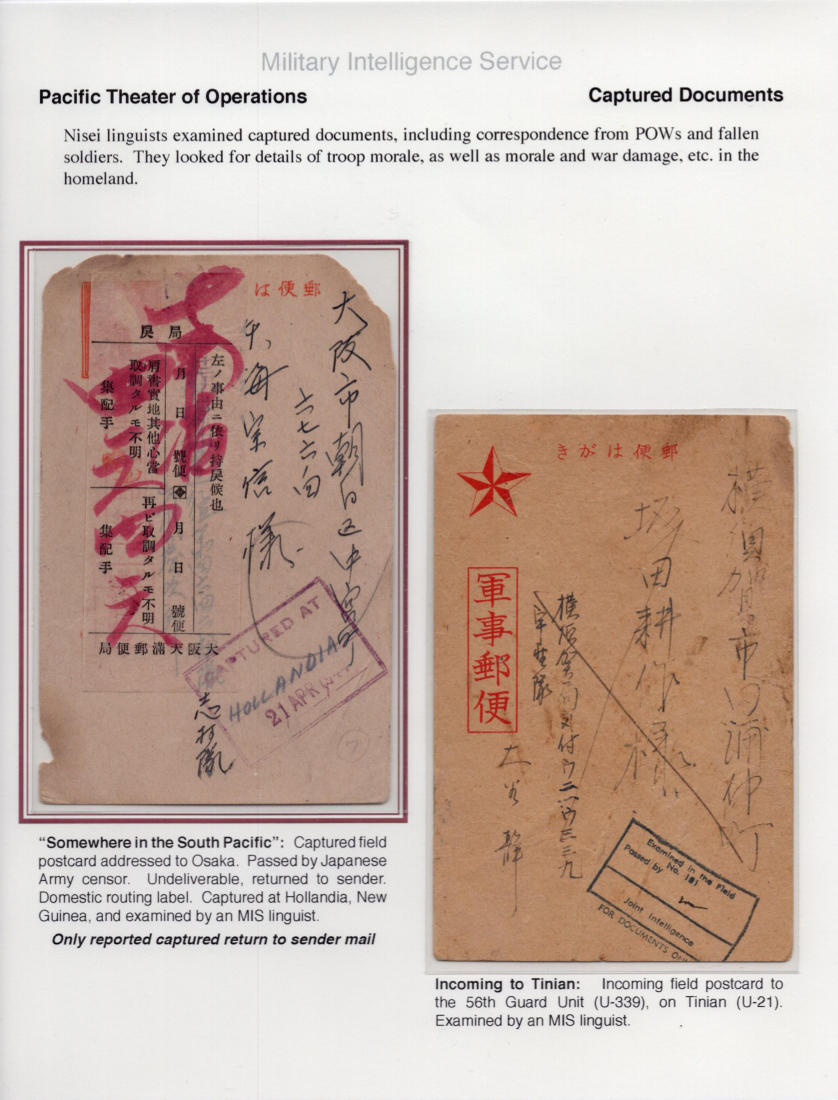 Military Intelligence Service
Pacific Theater of Operations
Captured Documents
Nisei linguists examined captured documents, including correspondence from POWs and fallen
soldiers. They looked for details of troop morale, as well as morale and war damage, etc. in the
homeland.
は便郵
大阪市朝日区中宮町
六七六内
様
局戻
左ノ事由ニ依リ持戻候也
月日號便
月日號便
肩書實地其他心當
取調タルモ不明
集配手
再ビ取調タルモ不明
集配手
局便郵滿天阪大
CAPTURED AT
HOLLANDIA
21 APR 1944
志村隊
7
"Somewhere in the South Pacific": Captured field
postcard addressed to Osaka. Passed by Japanese
Army censor. Undeliverable, returned to sender.
Domestic routing label. Captured at Hollandia, New
Guinea, and examined by an MIS linguist.
Only reported captured return to sender mail
きがは便郵
軍事郵便
横須賀市田浦仲町
坂田耕作様
Examined in the Field
Passed by No. 181
Joint Intelligence
FOR DOCUMENTS ONLY
Incoming to Tinian: Incoming field postcard to
the 56th Guard Unit (U-339), on Tinian (U-21).
Examined by an MIS linguist.